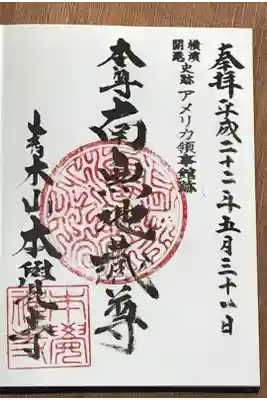 奉拝 平成二十二年五月三十日
横濱
開港
史跡 アメリカ領事館跡
本尊 南無地蔵尊
青木山本覺寺